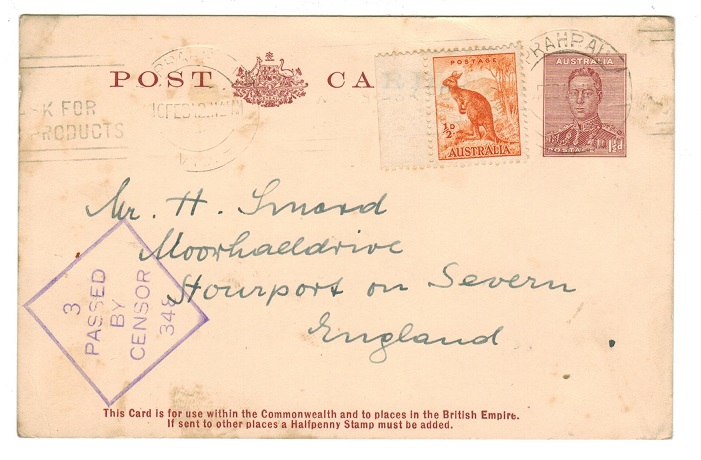 POST CARD
PRAHRAN
AUSTRALIA
POSTAGE
½D
AUSTRALIA
POSTAGE 1½d
K FOR
PRODUCTS
Mr. H. Smeed
Moorhaeldrive
Stourport on Severn
England
3
PASSED
BY
CENSOR
348
This Card is for use within the Commonwealth and to places in the British Empire.
If sent to other places a Halfpenny Stamp must be added.